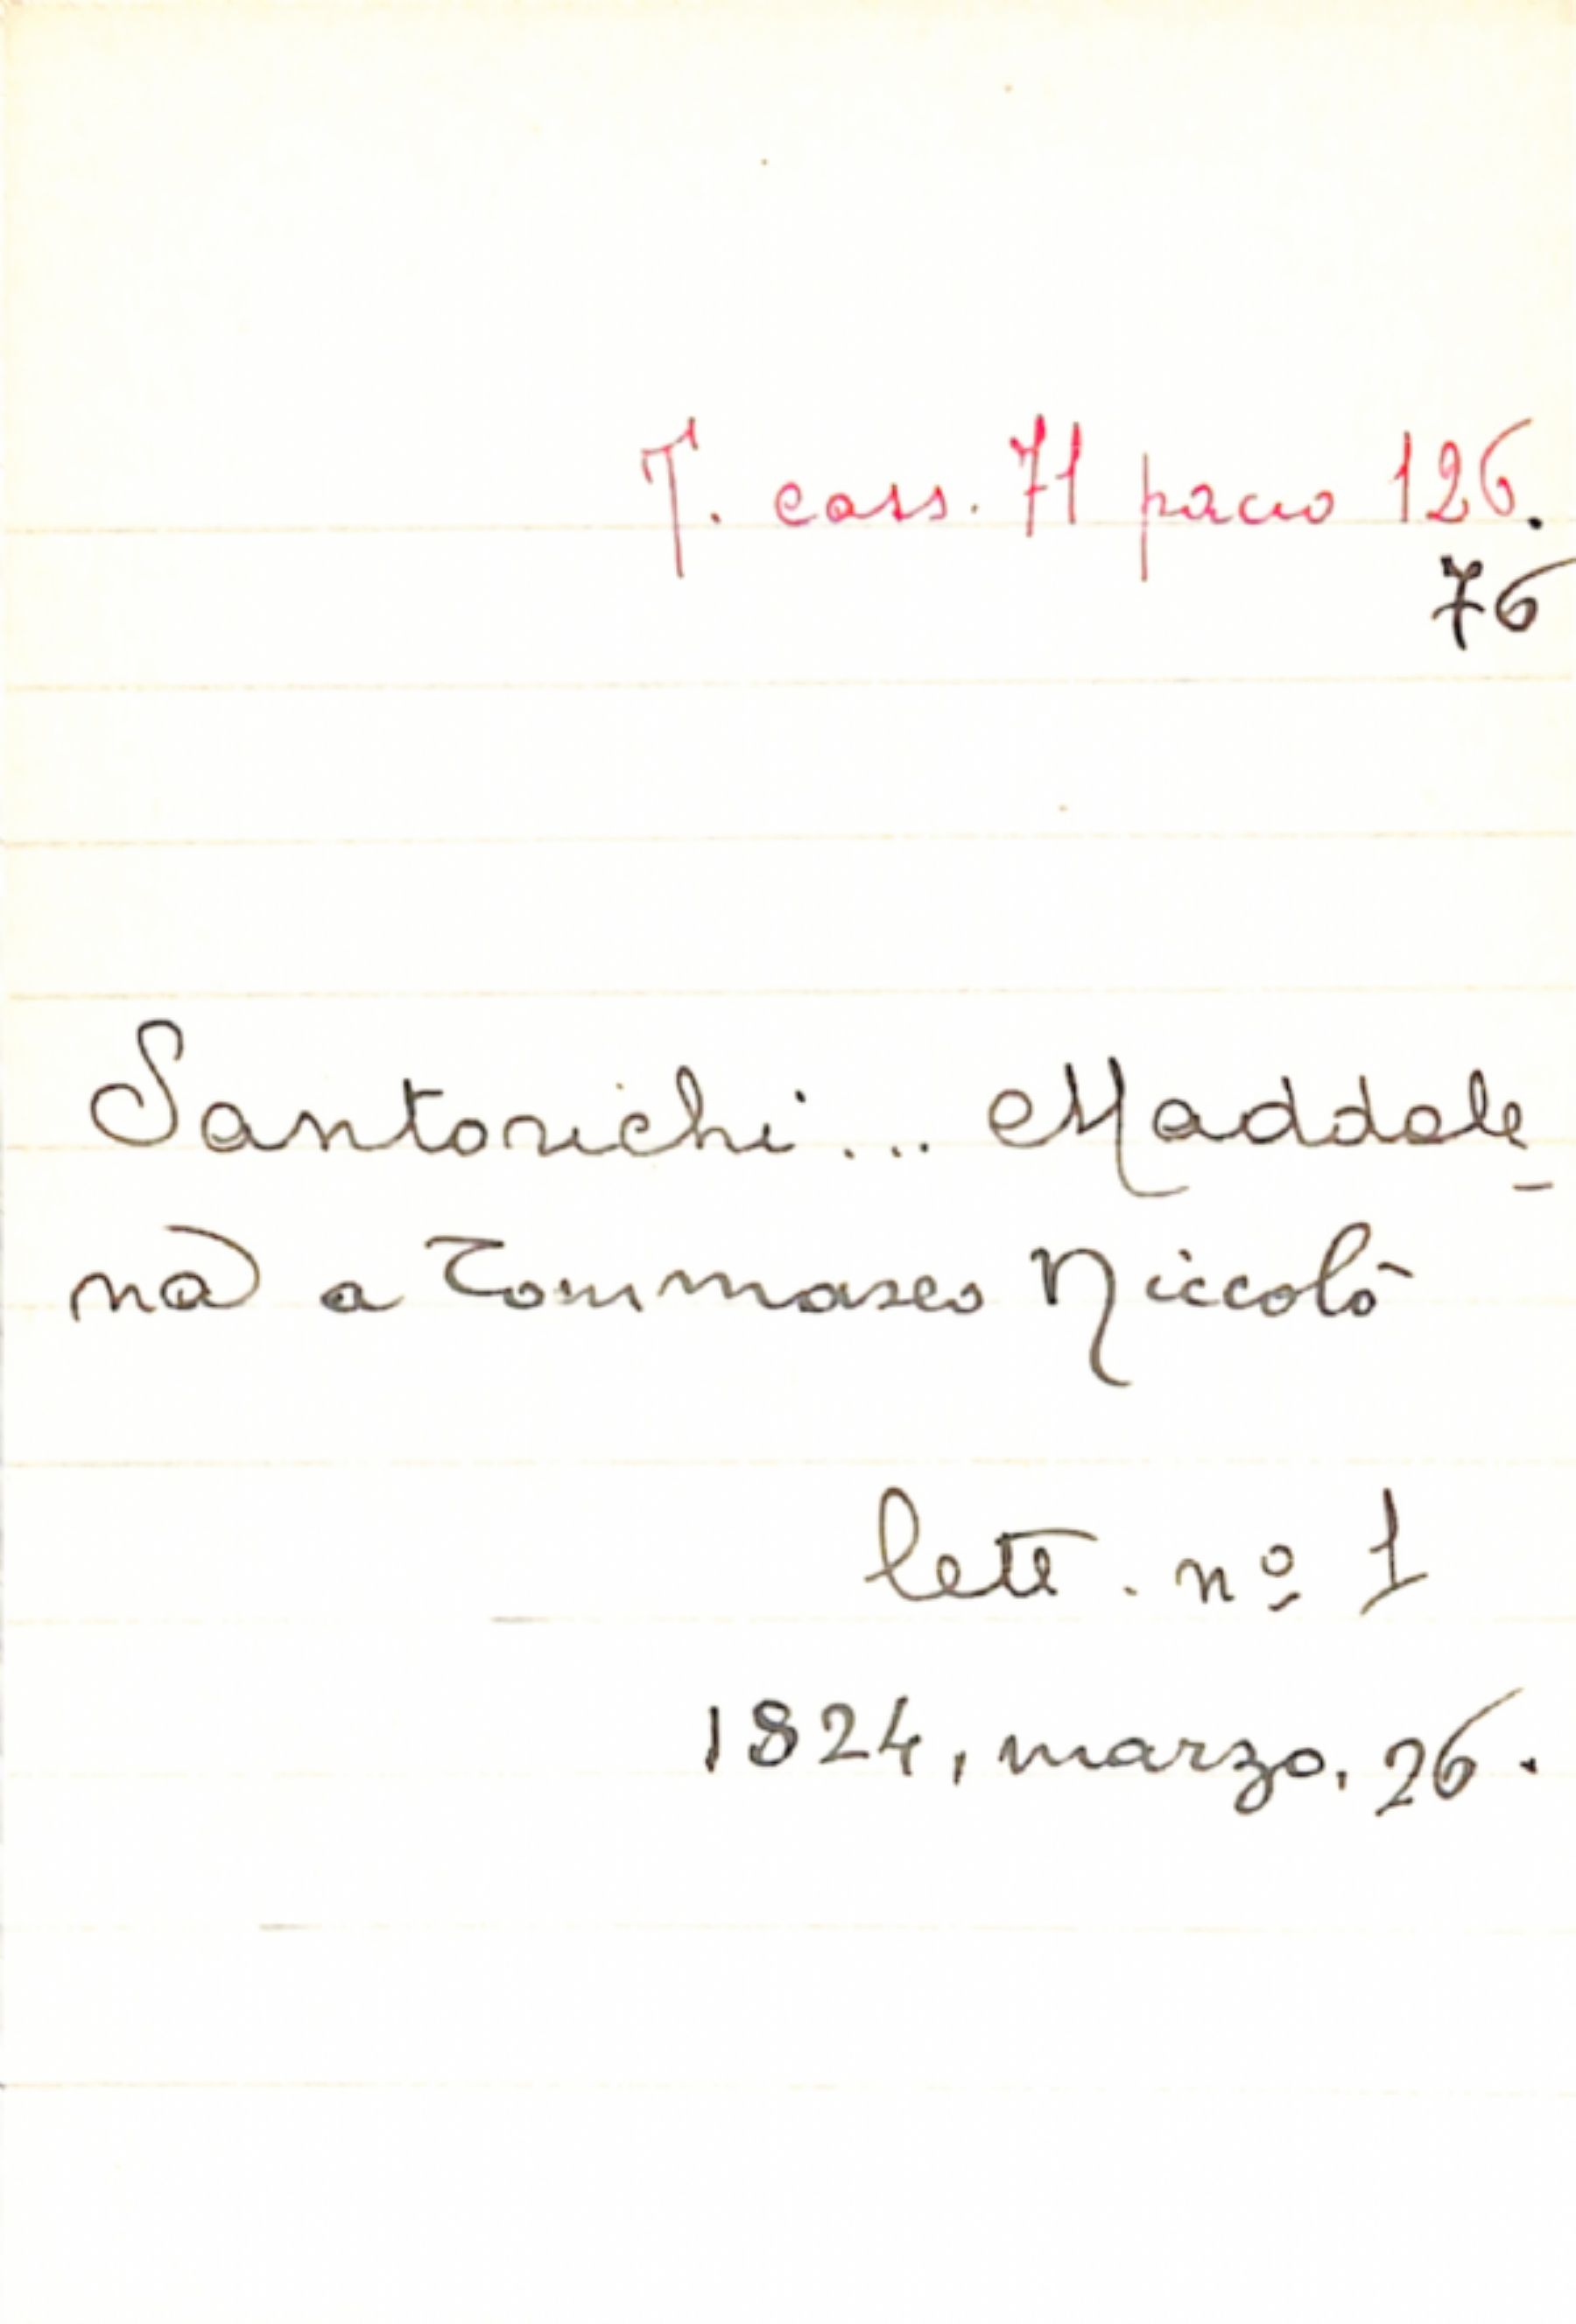 T. cass. 71 pacco 126.
76
Santorichi... Maddale_
na a Tommaseo Niccolò
lett. nº 1
1824, marzo, 26.